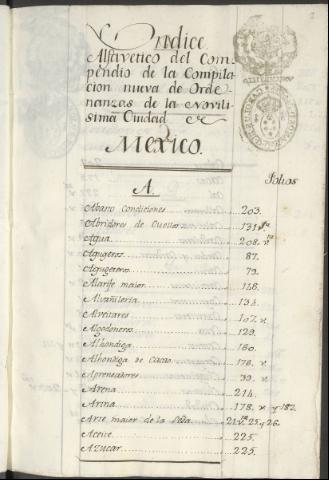 Yndice
Alfavetico del Com
pendio de la Compila
cion nueva de Orde
nanzas de la Novili
sima Ciudad de
Mexico.
Folios
A
Abasto Condiciones 203.
Abridores de Cuellos 131
Agua 208.
87.
Agugeteros 73.
Alarife maior 146.
Alvañileria 134.
Alveitares 107. v
Algodoneros 129.
Alhondiga 160.
Alhondiga de Cacao 176. v
Aprensadores 39. v
Arena 214.
Arina 178. v y 182.
Arte maior de la Seda 21. 25. y 26.
Aceite 225.
Azucar 225.